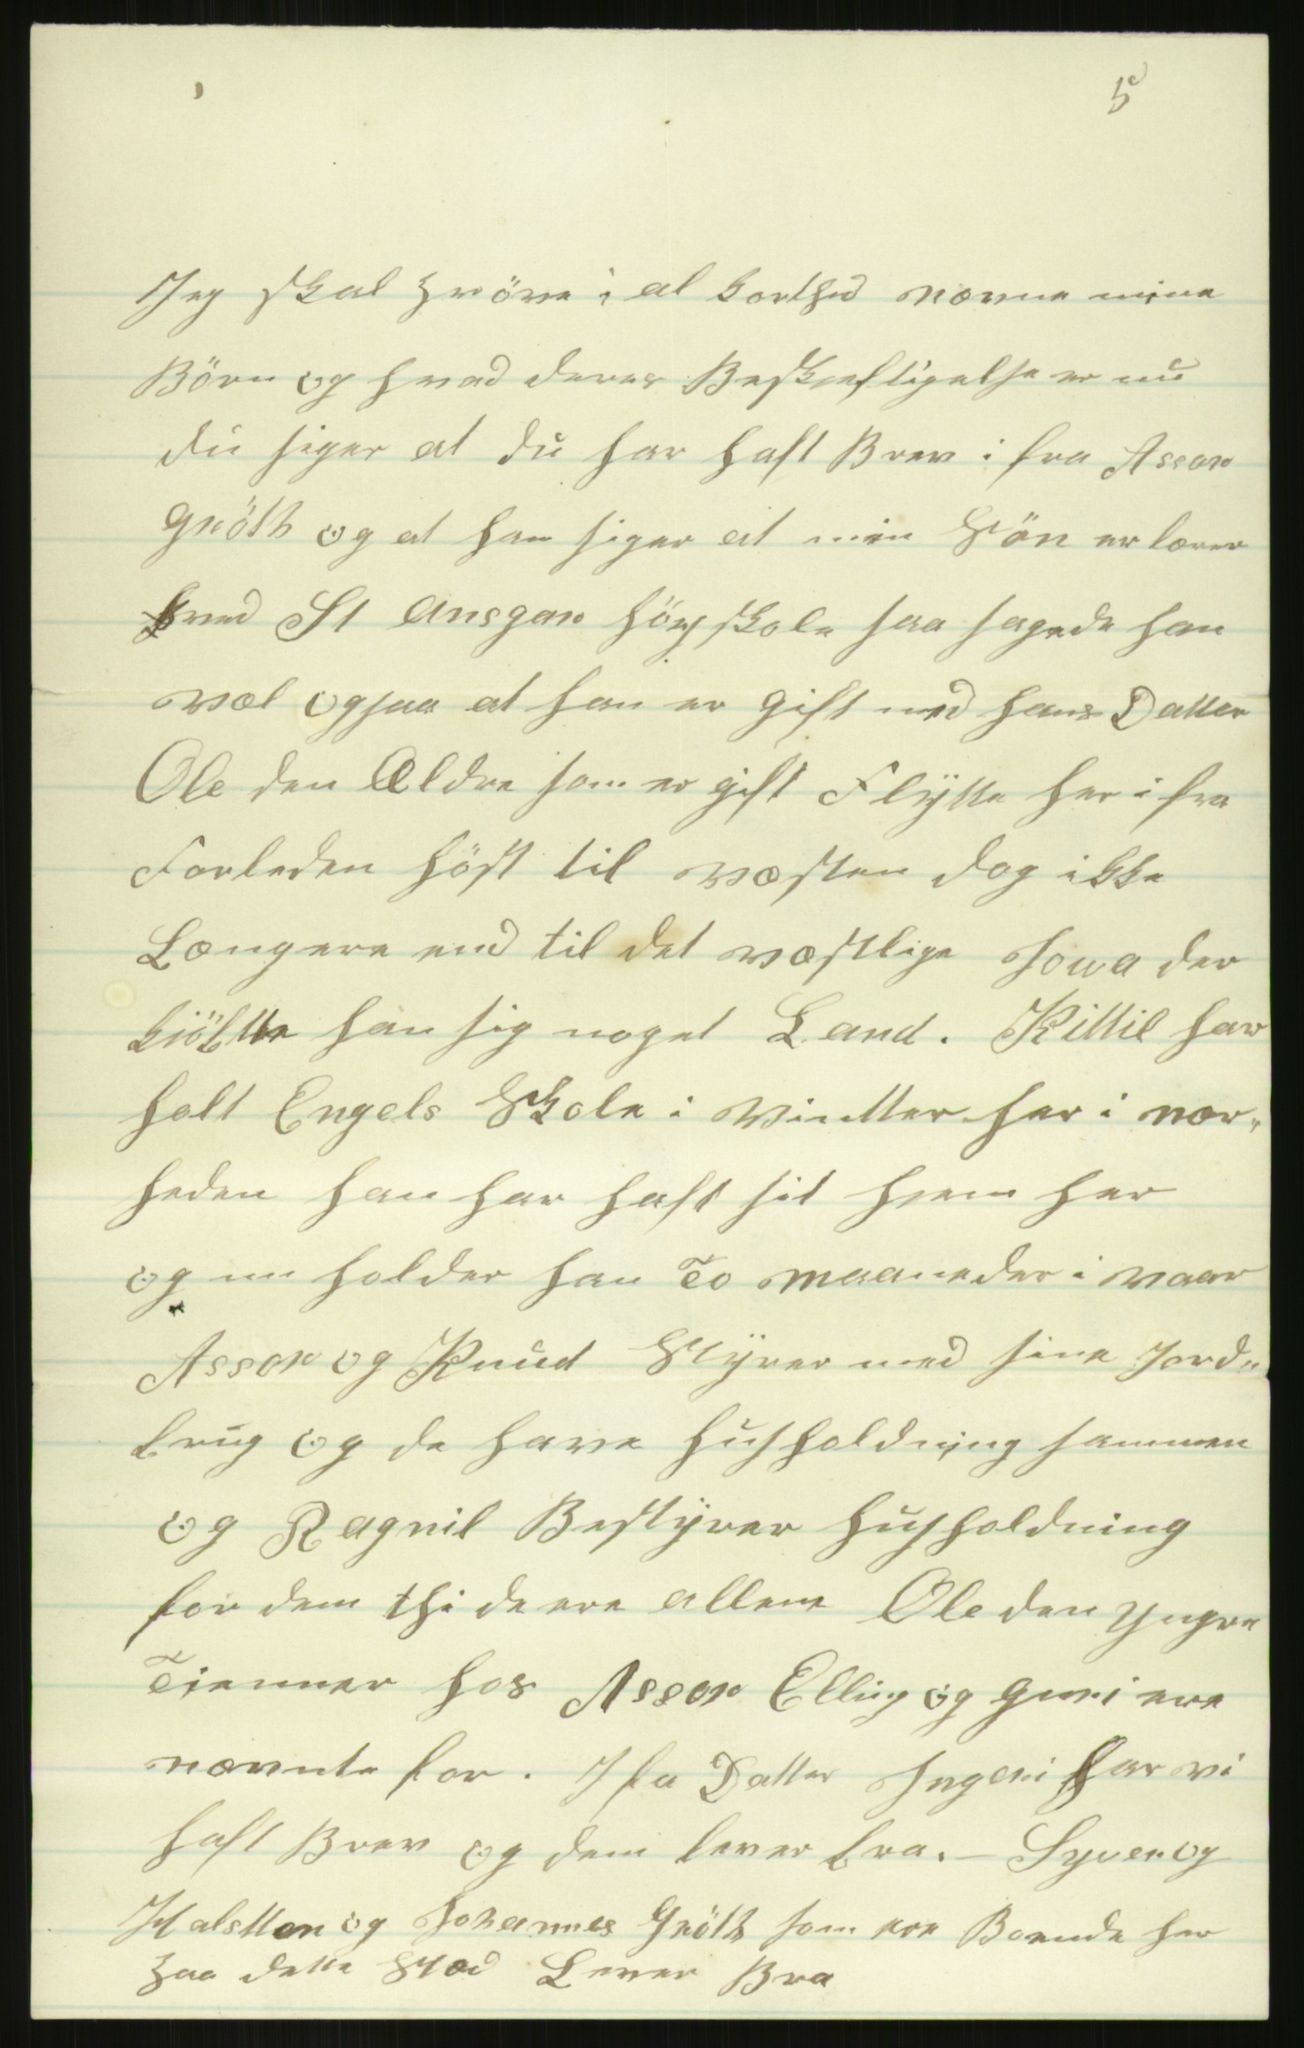 5
Jeg skal pröve i al korthed nævne mine
Börn og hvad deres Beskjeftigelse er nu
du siger at du har haft Brev i fra Asson
Gröth og at han siger at min Sön er lærer
ved St Ansgar höyskole saa sagede han
væl ogsaa at han er gift med hans Datter
Ole den Ældre som er gift Flÿtte her i fra
Forleden höst til væsten dog ikke
Længere end til det væstlige Iowa der
kjöbtte han sig noget Land. Kittil har
holt Engels Skole i Vintter her i nær„
heden han har haft sit hjem her
og nu holder han To maaneder i vaar
Asson og Knud Stÿrer med sine Jord„
brug og de have husholdning sammen
og Ragnil Bestÿrer husholdning
for dem thi de ere allene Ole den Yngre
Tienner hos Asson Elling og Guri ere
nævnte for. Ifra Datter Ingeri har vi
haft Brev og dem lever bra. — Syver og
Halstten og Johannes Gröth som ere Boende her
paa dette Stæd Lever Bra